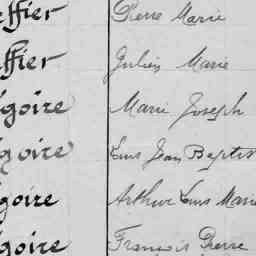 effier Pierre Marie
ffier Julien Marie
égoire Marie Joseph
égoire Louis Jean Baptis
égoire Arthur Louis Marie
égoire François Pierre